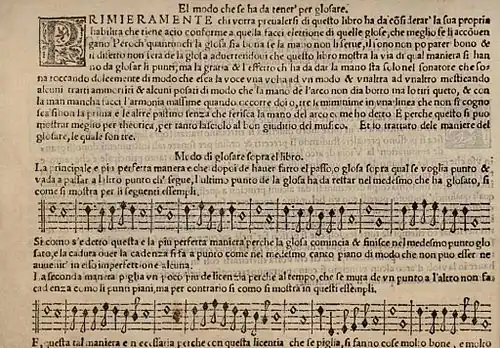 El modo che se ha da tener' per glosare.
PRIMIERAMENTE chi vorra prevalersi di questo libro ha da cõsiderar' la sua propria
habilita che tiene acio conforme a quella facci elettione di quelle glose, che meglio se li accõuen
gano Peroch'quantonch la glosa sia bona se la mano non li serue, il sono non po parer bono &
il diffetto non sera de la glosa aduertendoui che questo libro mostra la via di qual maniera si han
no da glosar li punti, ma la gratia & l'effetto ch'ha da dar la mano sta sol nel sonatore che so
na toccando dolcemente di modo che esca la voce vna volta ad vn modo & vnaltra ad vnaltro mesticando
alcuni tratti ammortiti & alcuni posati di modo che la mano de l'arco non dia botto ma lo tiri queto, & con
la man mancha facci l'armonia massime quando occorre doi o, tre semiminime in vna linea che non si cogno
sca si non la prima e le altre passino senza che ferisca la mano del arco come ho detto. E perche questo si puo
mostrar meglio per theorica, per tanto lasciolo al bon giuditio del musico. Et io trattato dele maniere del
glosare, le quale son tre.
Modo di glosare sopra el libro.
La principale e piu perfetta maniera e che dopoi de hauer fatto el passo, o glosa sopra qual se voglia punto &
vada a passar a l'altro punto ch' segue, l'ultimo punto de la glosa ha da restar nel medesmo che ha glosato, si
come si mostra per li seguenti essempli.
Si como s'e detro questa e la piu perfetta maniera perche la glosa comincia & finisce nel medesmo punto glo
sato, e la caduta ouer la cadenza si fa a punto come nel medesmo canto piano di modo che non puo esser ne
auuenir' in esso imperfettione alcuna.
La seconda maniera piglia vn poco piu de licenzia perche al tempo, che se muta de vn punto a l'altro non fa
cadenza como li punti piani, ma per contrario si como si mostra in questi essempli.
E, questa tal maniera e necessaria perche con questa licentia che se piglia, si fanno cose molto bone, e molto